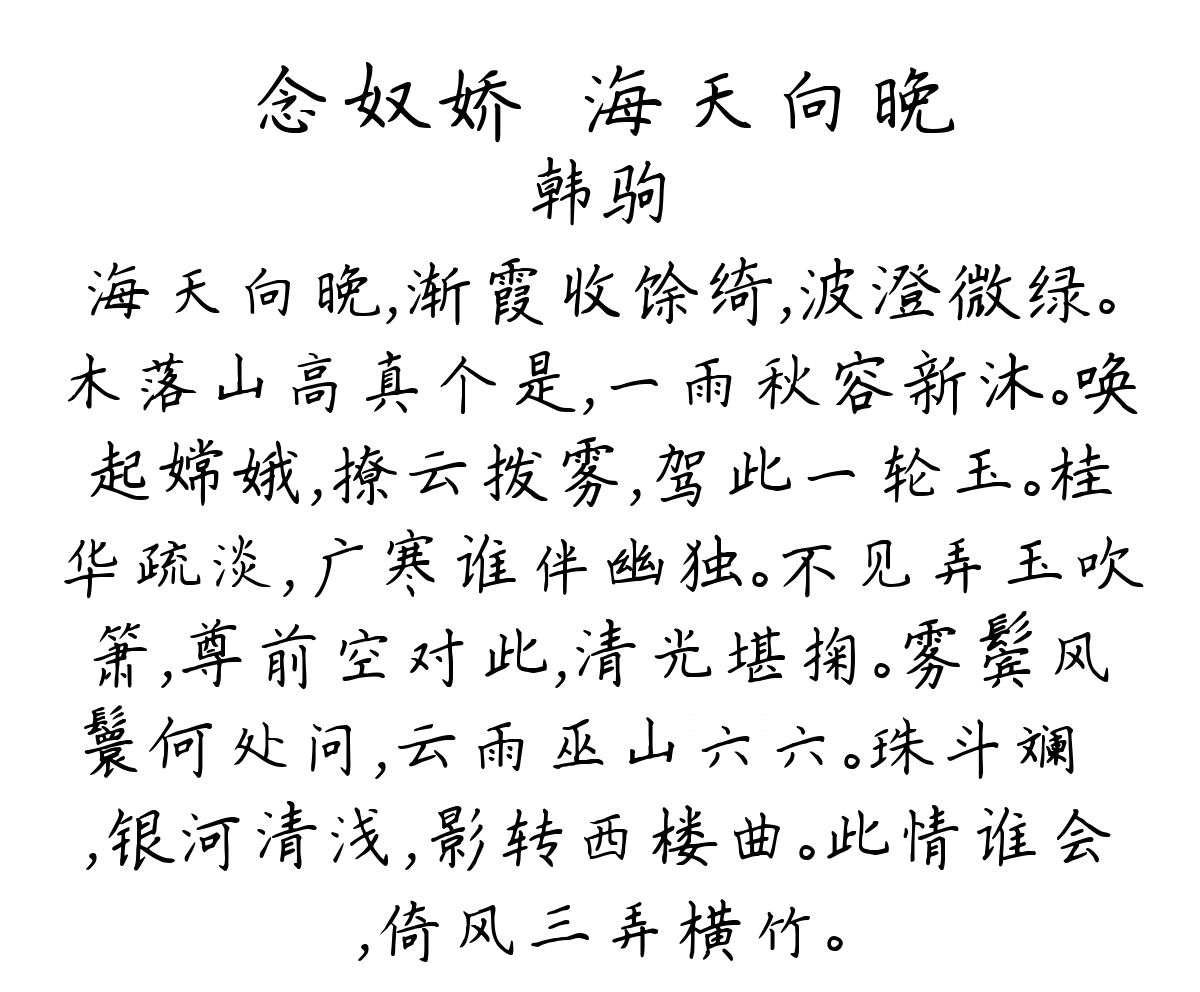 念奴娇 海天向晚
韩驹
海天向晚,渐霞收馀绮,波澄微绿。
木落山高真个是,一雨秋容新沐。唤
起嫦娥,撩云拨雾,驾此一轮玉。桂
华疏淡,广寒谁伴幽独。不见弄玉吹
箫,尊前空对此,清光堪掬。雾鬓风
鬟何处问,云雨巫山六六。珠斗斓
,银河清浅,影转西楼曲。此情谁会
,倚风三弄横竹。